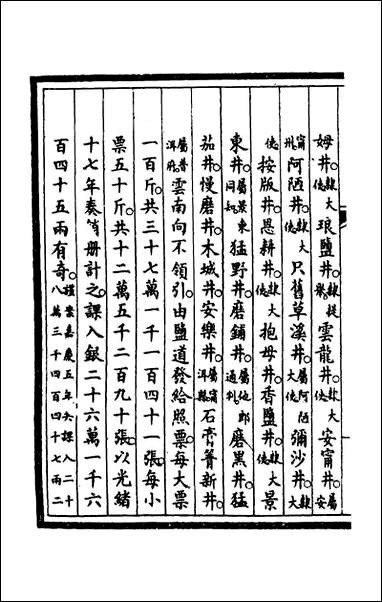 姆井。隸大使琅鹽井。隸提舉雲龍井。隸大使安甯井。屬安
甯州阿陋井。隸大使只舊草溪井。屬阿陋大使彌沙井。隸大
使按版井恩耕井。隸大使抱母井香鹽井。隸大使景
東井。屬景東同知猛野井磨鋪井。屬他郎通判磨黑井。猛
茄井慢磨井木城井安樂井。屬洱縣石膏箐新井。
屬普洱府雲南向不領引。由鹽道發給照票。每大票
一百斤。共三十七萬一千一百四十一張。每小
票五十斤。共十二萬五千二百九十張。以光緒
十七年奏銷册計之。課入銀二十六萬一千六
百四十五兩有奇。謹案嘉慶五年課入二十八萬三千四百四十七兩二